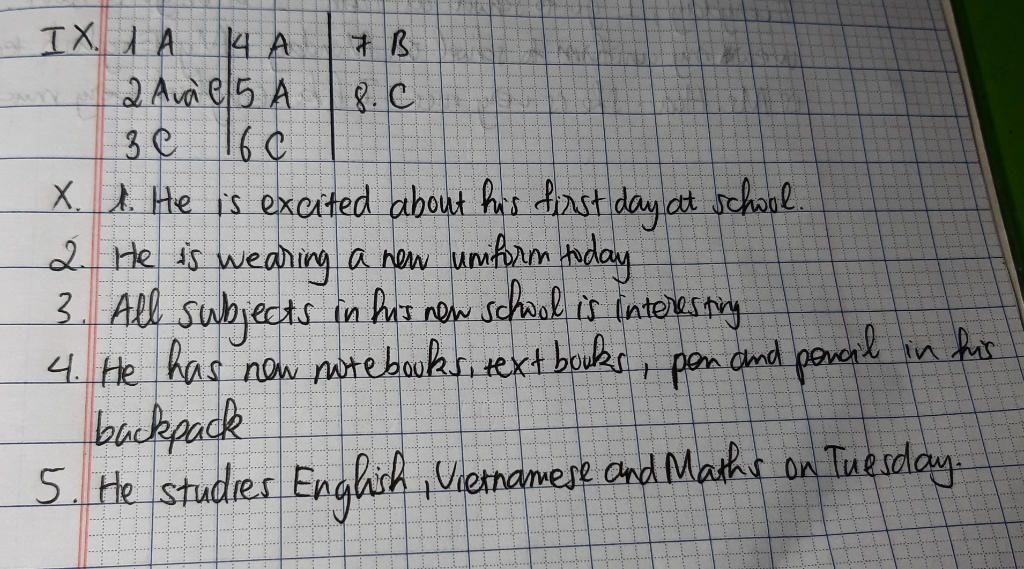 IX. 1 A | 4 A | 7 B
2 A và C | 5 A | 8. C
3 C | 6 C
X. 1. He is excited about his first day at school.
2. He is wearing a new uniform today
3. All subjects in his new school is interesting
4. He has new notebooks, textbooks, pen and pencil in his
backpack
5. He studies English, Vietnamese and Maths on Tuesday.